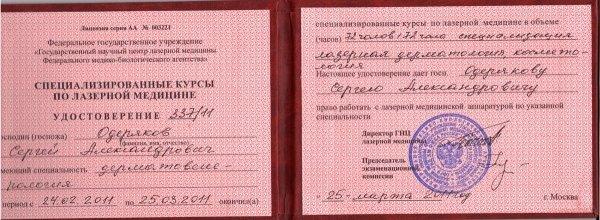 Лицензия серия АА № 003221
Федеральное государственное учреждение
«Государственный научный центр лазерной медицины
Федерального медико-биологического агентства»
СПЕЦИАЛИЗИРОВАННЫЕ КУРСЫ
ПО ЛАЗЕРНОЙ МЕДИЦИНЕ
УДОСТОВЕРЕНИЕ 337/11
осподин (госпожа) Одеряков
Сергей Александрович
(фамилия, имя, отчество)
меющий специальность дерматовене-
рология
период с 24.02.2011 по 25.03.2011 окончил(а)
специализированные курсы по лазерной медицине в объеме
(часов) 72 часов специализация
лазерная дерматология космето-
логия
Настоящее удостоверение дает госп. Одерякову
Сергею Александровичу
право работать с лазерной медицинской аппаратурой по указанной
специальности
Директор ГНЦ
лазерной медицины
Председатель
экзаменационной
комиссии
«25» марта 2011 г. г. Москва